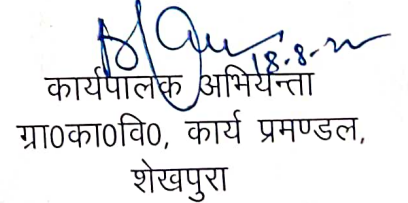 18-8-22
कार्यपालक अभियन्ता
ग्रा0का0वि0, कार्य प्रमण्डल,
शेखपुरा